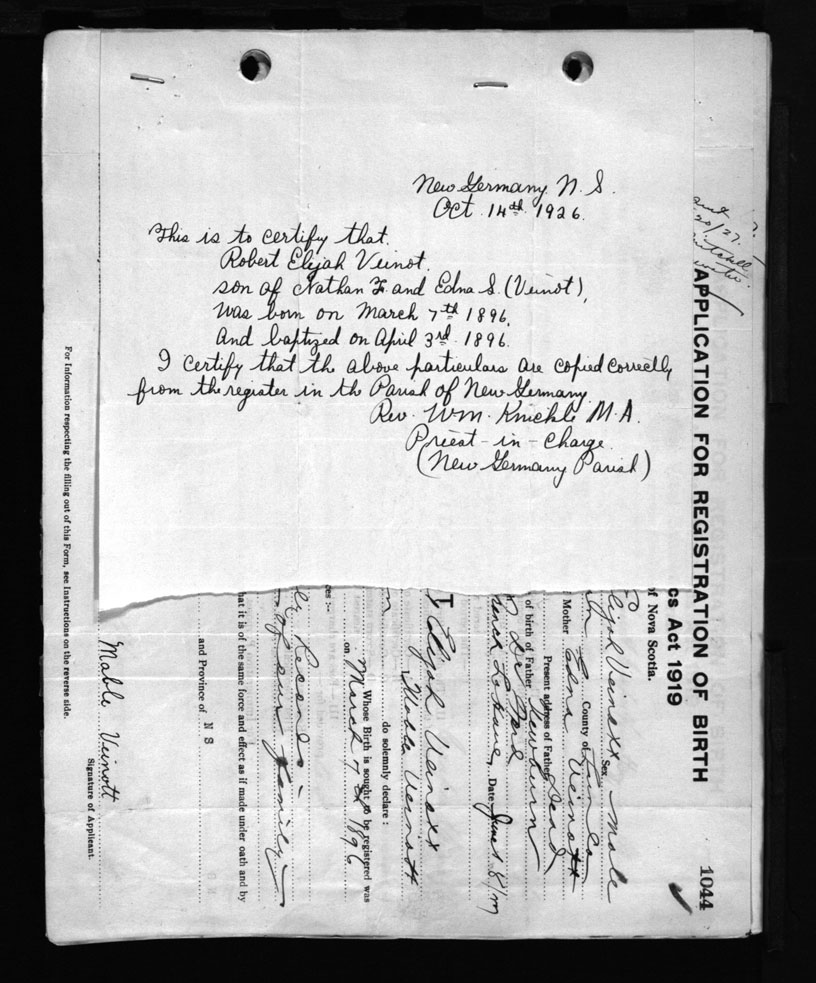 New Germany N. S.
Oct. 14th 1926.
This is to certify that.
Robert Elijah Veinot.
son of Nathan F. and Edna S. (Veinot),
was born on March 7th 1896,
And baptized on April 3rd 1896.
I certify that the above particulars are copied correctly
from the register in the Parish of New Germany.
Rev. Wm. Knickle M.A.
Priest-in-Charge.
(New Germany Parish)
1044
APPLICATION FOR REGISTRATION OF BIRTH
cs Act 1919
of Nova Scotia.
lijah Veinott Sex Male
County of Lun Co
Mother Edna Veinott
Present address of Father Dead
of birth of Father Newburn
Date June
Elijah Veinott
Mable Veinott
do solemnly declare:
Whose Birth is sought to be registered was
on March 7th 1896
ces:—
Records –
of our family
hat it is of the same force and effect as if made under oath and by
and Province of N S
Mable Veinott
Signature of Applicant.
For Information respecting the filling out of this Form, see Instructions on the reverse side.